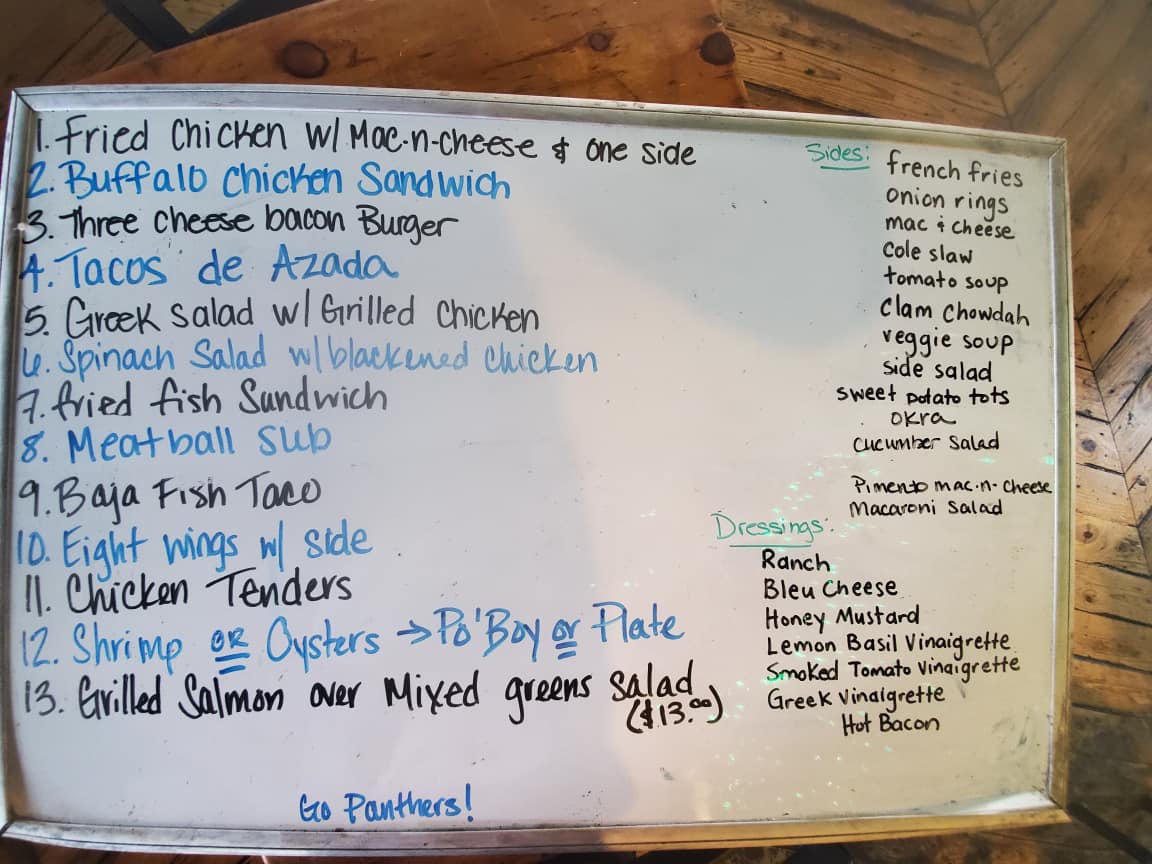 1. Fried Chicken w/ Mac-n-cheese & one side
2. Buffalo Chicken Sandwich
3. Three cheese bacon Burger
4. Tacos de Azada
5. Greek Salad w/ Grilled Chicken
6. Spinach Salad w/ blackened Chicken
7. fried fish Sandwich
8. Meatball Sub
9. Baja Fish Taco
10. Eight wings w/ side
11. Chicken Tenders
12. Shrimp OR Oysters → Po'Boy or Plate
13. Grilled Salmon over Mixed greens Salad
($13.00)
Go Panthers!
Sides:
french fries
onion rings
mac & cheese
Cole slaw
tomato soup
Clam Chowdah
veggie soup
side salad
sweet potato tots
okra
Cucumber Salad
Pimento mac-n-Cheese
Macaroni Salad
Dressings:
Ranch
Bleu Cheese
Honey Mustard
Lemon Basil Vinaigrette
Smoked Tomato Vinaigrette
Greek Vinaigrette
Hot Bacon